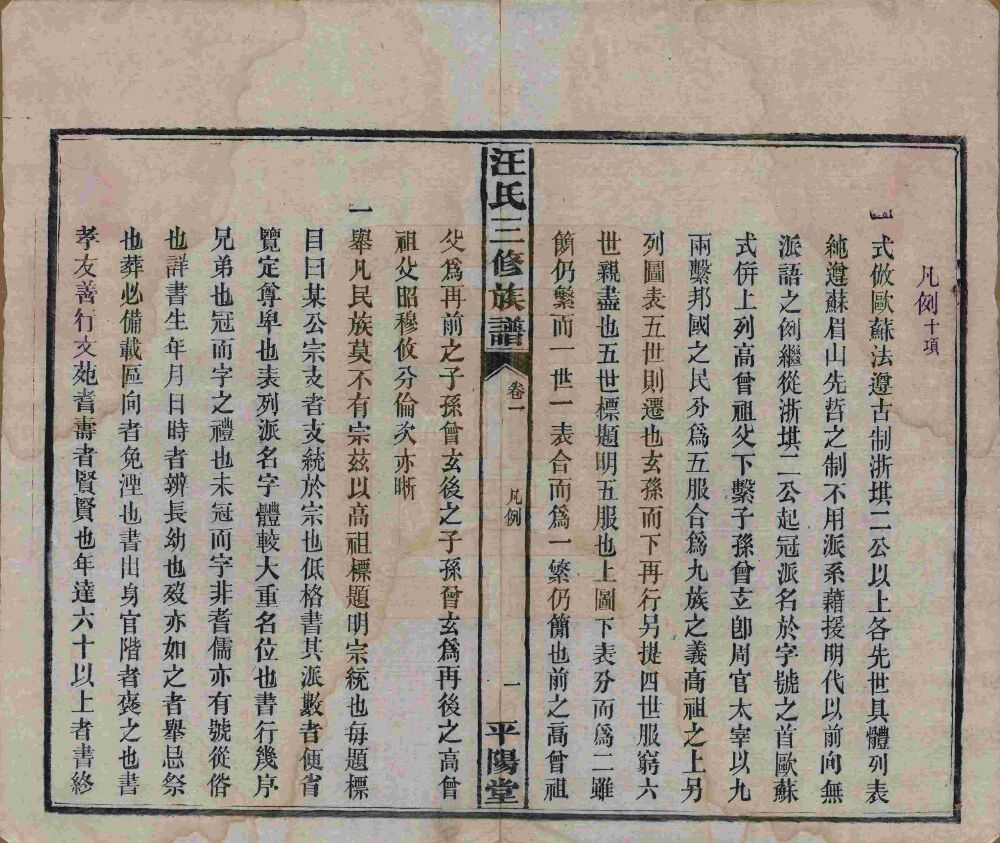 凡例十項
一式倣歐蘇法遵古制浙堪二公以上各先世具體列表
純遵蘇眉山先哲之制不用派系藉援明代以前向無
派語之例繼從浙堪二公起冠派名於字號之首歐蘇
式併上列高曾祖父下繫子孫曾玄卽周官太宰以九
兩繫邦國之民分爲五服合爲九族之義高祖之上另
列圖表五世則遷也玄孫而下再行另提四世服窮六
世親盡也五世標題明五服也上圖下表分而爲二雖
簡仍繁而一世一表合而爲一繁仍簡也前之高曾祖
汪氏三修族譜
卷一
凡例
一
平陽堂
父爲再前之子孫曾玄後之子孫曾玄爲再後之高曾
祖父昭穆攸分倫次亦晰
一舉凡民族莫不有宗兹以高祖標題明宗統也每題標
目曰某公宗支者支統於宗也低格書其派數者便省
覽定尊卑也表列派名字體較大重名位也書行幾序
兄弟也冠而字之禮也未冠而字非耆儒亦有號從俗
也詳書生年月日時者辨長幼也歿亦如之者舉忌祭
也葬必備載區向者免湮也書出身官階者褒之也書
孝友善行文苑耆壽者賢賢也年達六十以上者書終